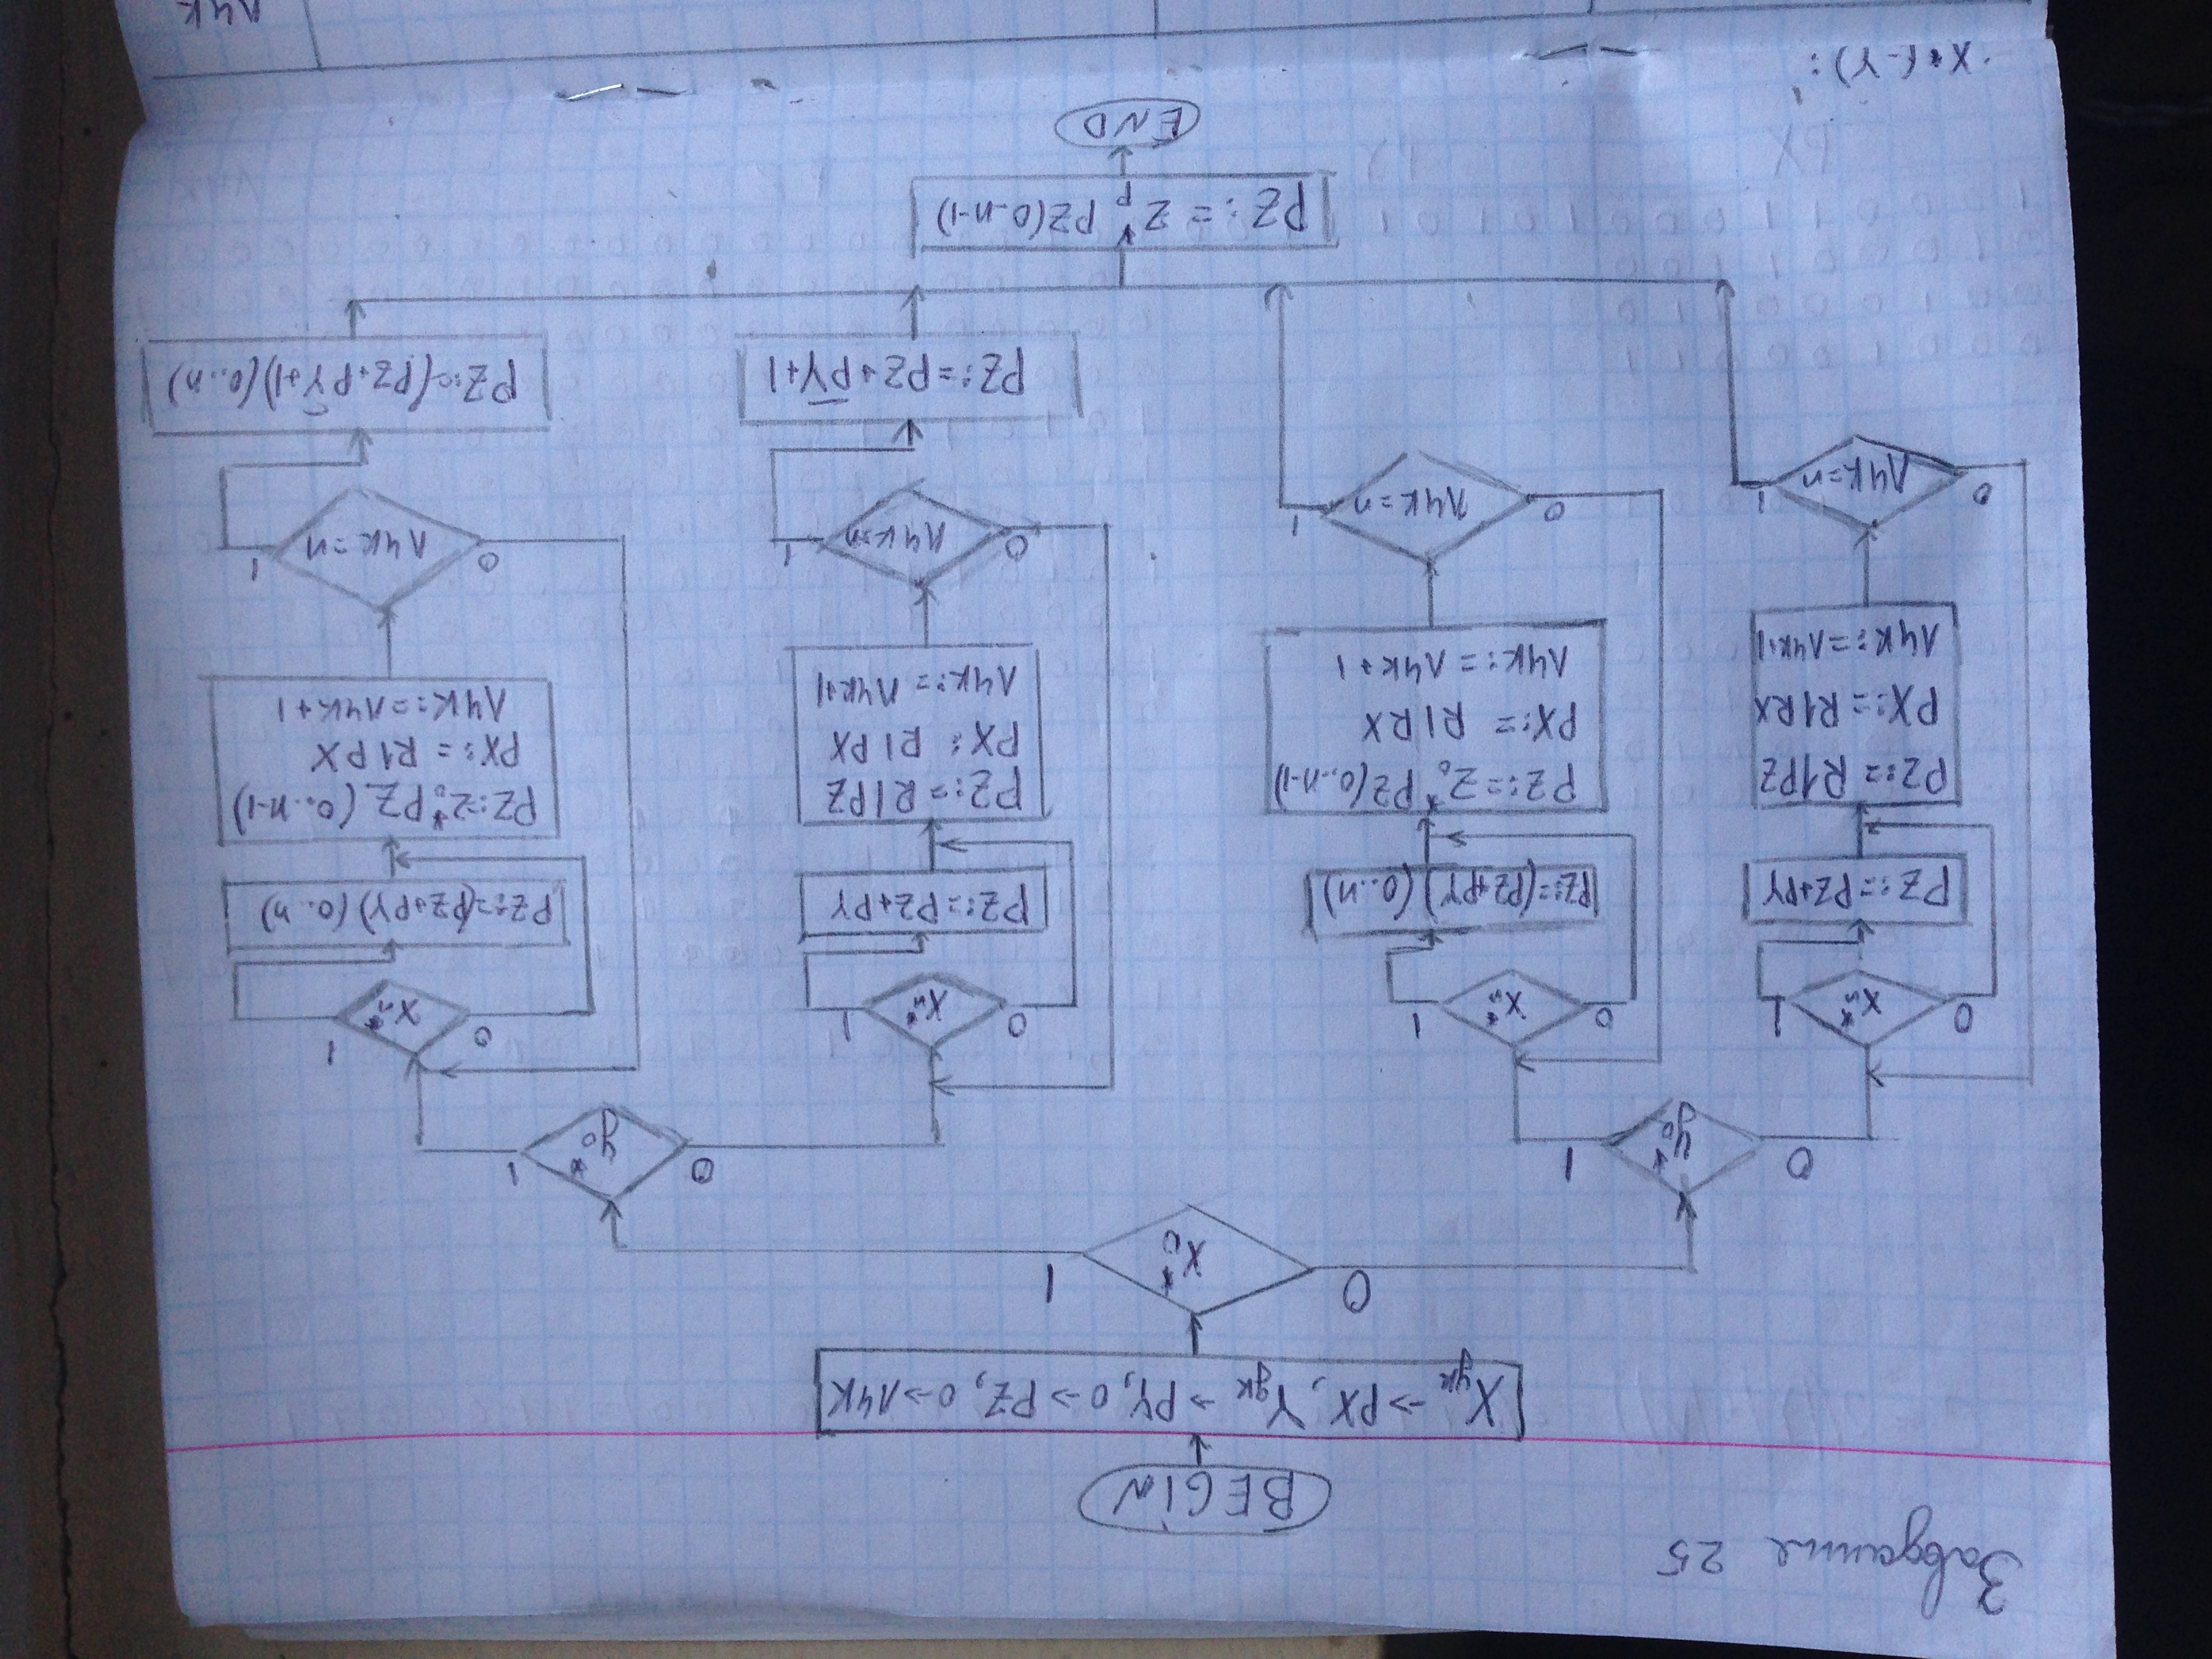 Завдання 25
BEGIN
Xдк → PX, Yдк → PY, 0 → PZ, 0 → ЛЧК
X₀*
0
1
y₀*
0
1
y₀*
0
1
Xₙ*
0
1
PZ:=PZ+PY
PZ:=R1PZ
PX:=R1RX
ЛЧК:=ЛЧК+1
ЛЧК=n
0
1
Xₙ*
0
1
PZ:=(PZ+PY)(0..n)
PZ:=Z₀*PZ(0..n-1)
PX:=R1RX
ЛЧК:=ЛЧК+1
ЛЧК=n
0
1
Xₙ*
0
1
PZ:=PZ+PY
PZ:=R1PZ
PX: R1PX
ЛЧК:=ЛЧК+1
ЛЧК=n
0
1
PZ:=PZ+P̅Y̅+1
Xₙ*
0
1
PZ:=(PZ+PY)(0..n)
PZ:=Z₀*PZ(0..n-1)
PX:=R1PX
ЛЧК:=ЛЧК+1
ЛЧК=n
0
1
PZ:=(PZ+P̅Y̅+1)(0..n)
PZ:=Zₚ*PZ(0..n-1)
END
X*(-Y):
ЛЧК